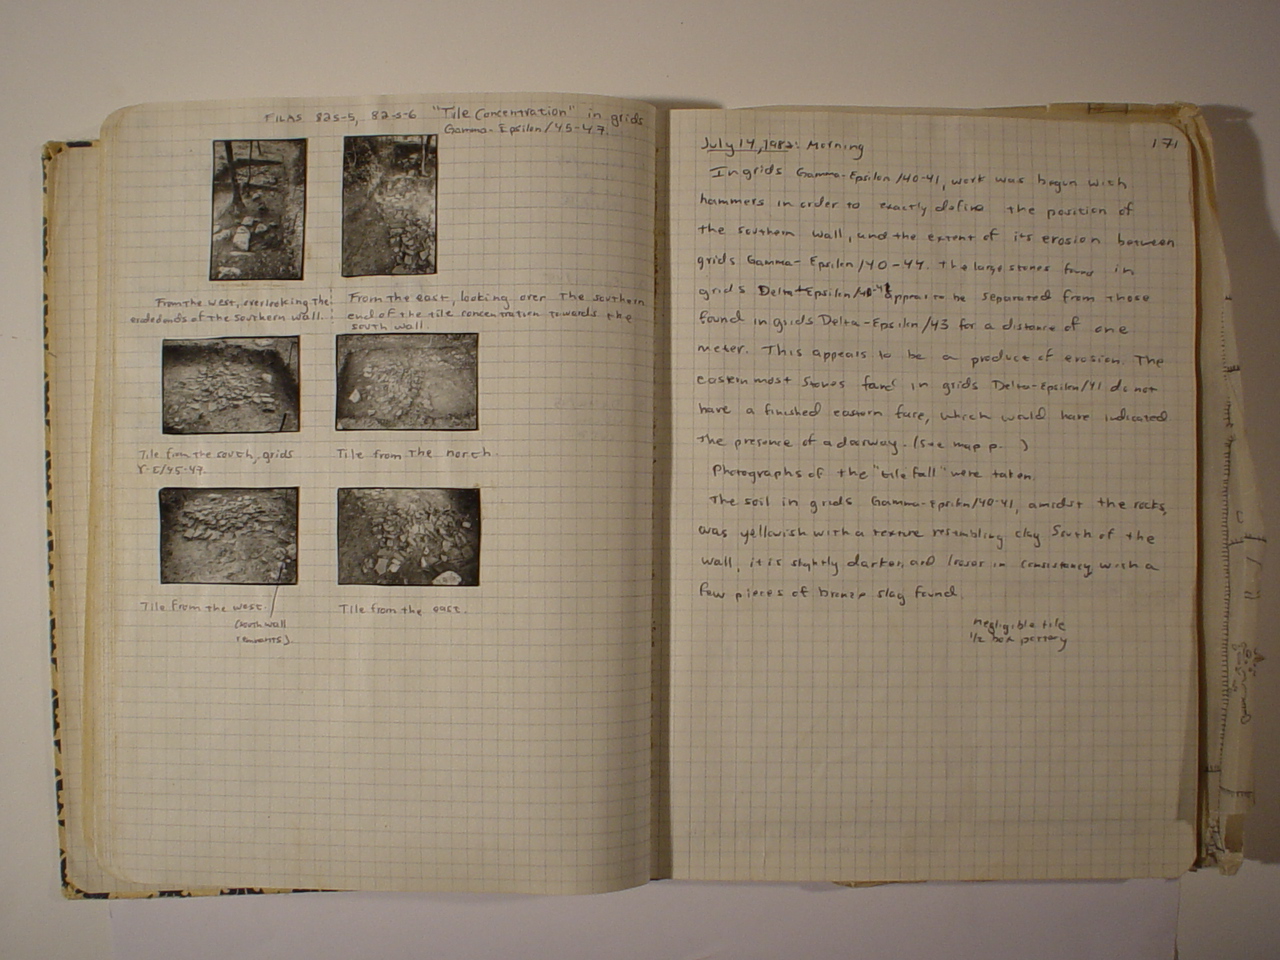 FILMS 82S-5, 82-S-6 "Tile Concentration" in grids
Gamma-Epsilon/45-47.
From the west, overlooking the
eroded ends of the southern wall.
From the east, looking over the southern
end of the tile concentration towards the
south wall.
Tile from the south, grids
γ-ε/45-47.
Tile from the north.
Tile from the west.
(south wall
remnants).
Tile from the east.
171
July 14, 1982: Morning
In grids Gamma-Epsilon/40-41, work was begun with
hammers in order to exactly define the position of
the southern wall, and the extent of its erosion between
grids Gamma-Epsilon/40-44. The large stones found in
grids Delta-Epsilon/40- appear to be separated from those
found in grids Delta-Epsilon/43 for a distance of one
meter. This appears to be a product of erosion. The
easternmost stones found in grids Delta-Epsilon/41 do not
have a finished eastern face, which would have indicated
the presence of a doorway. (See map p. )
Photographs of the "tile fall" were taken.
The soil in grids Gamma-Epsilon/40-41, amidst the rocks,
was yellowish with a texture resembling clay South of the
wall, it is slightly darker, and looser in consistency, with a
few pieces of bronze slag found.
negligible tile
1/2 box pottery